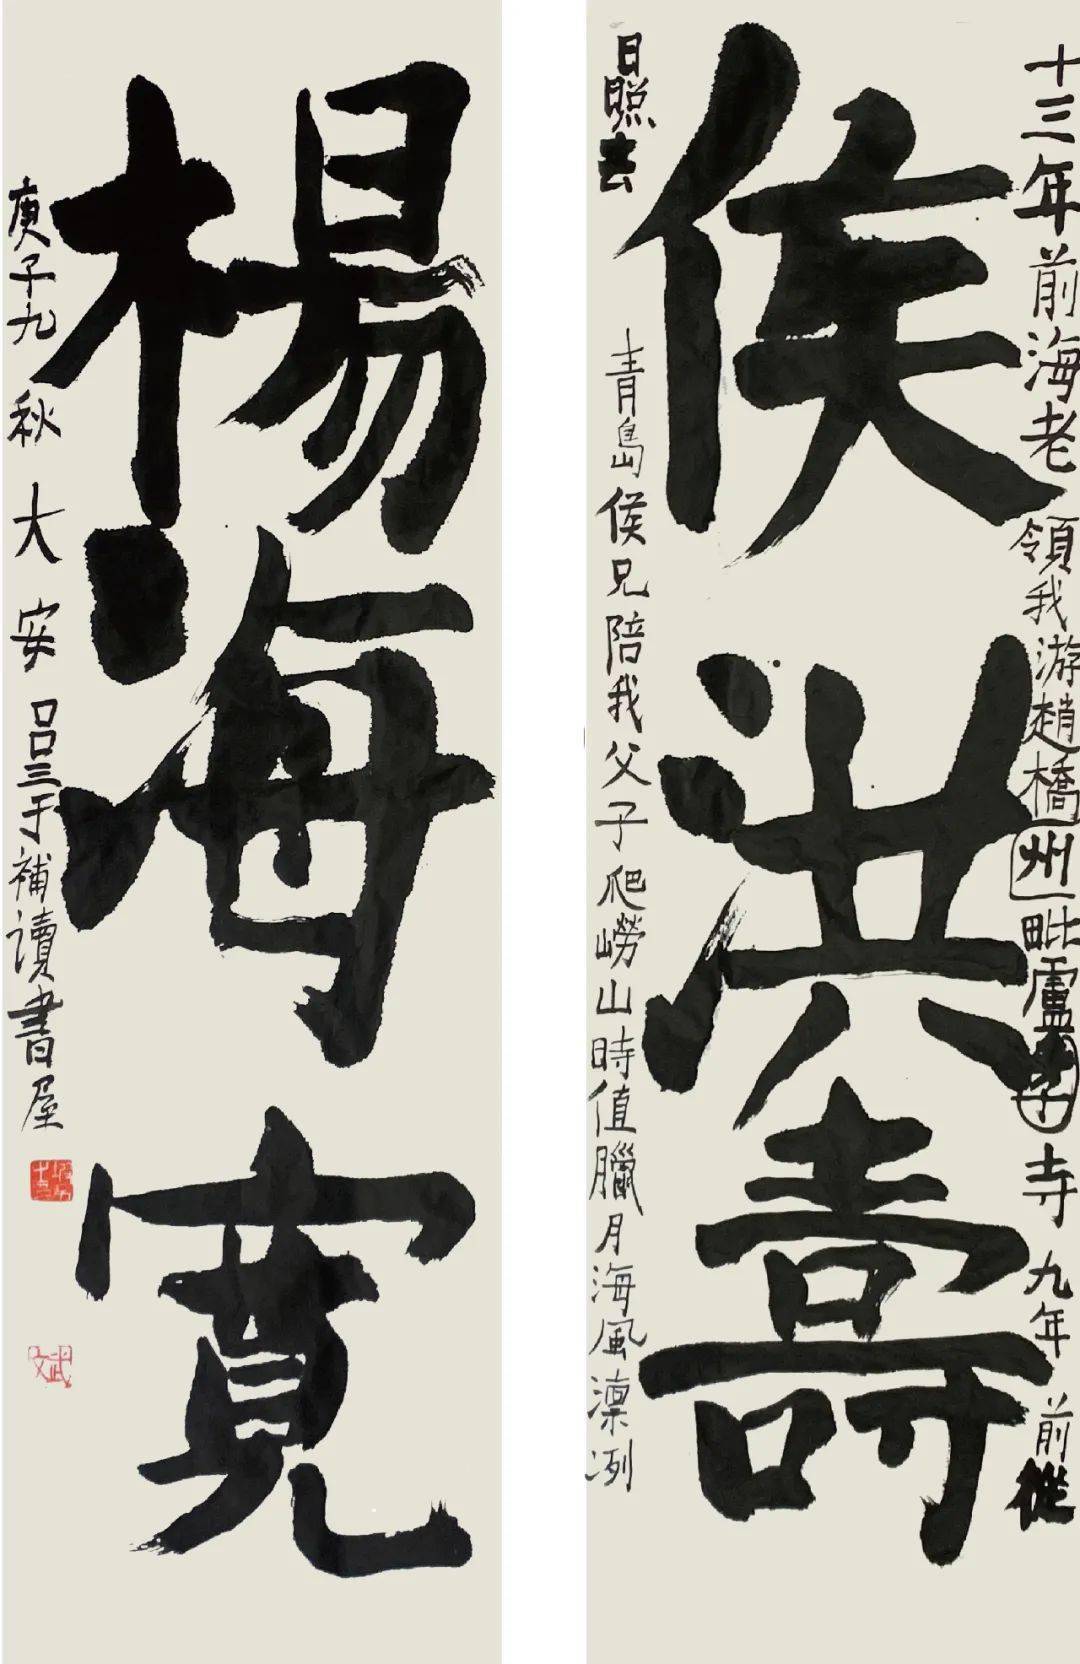 十三年前海老領我游趙橋州毗盧寺九年前從
侯洪壽
日照去青島侯兄陪我父子爬嶗山時值臘月海風凛冽
楊海寬
庚子九秋大安吕三于補讀書屋
斌